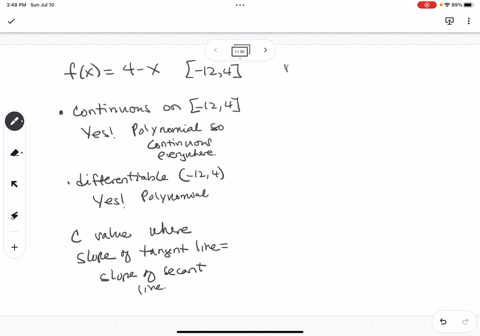 3:48 PM Sun Jul 10
89%
1 / 20
f(x) = 4 - x [-12, 4]
• Continuous on [-12, 4]
Yes! Polynomial so
continuous
everywhere.
• differentiable (-12, 4)
Yes! Polynomial
C value where
slope of tangent line =
slope of secant
line.